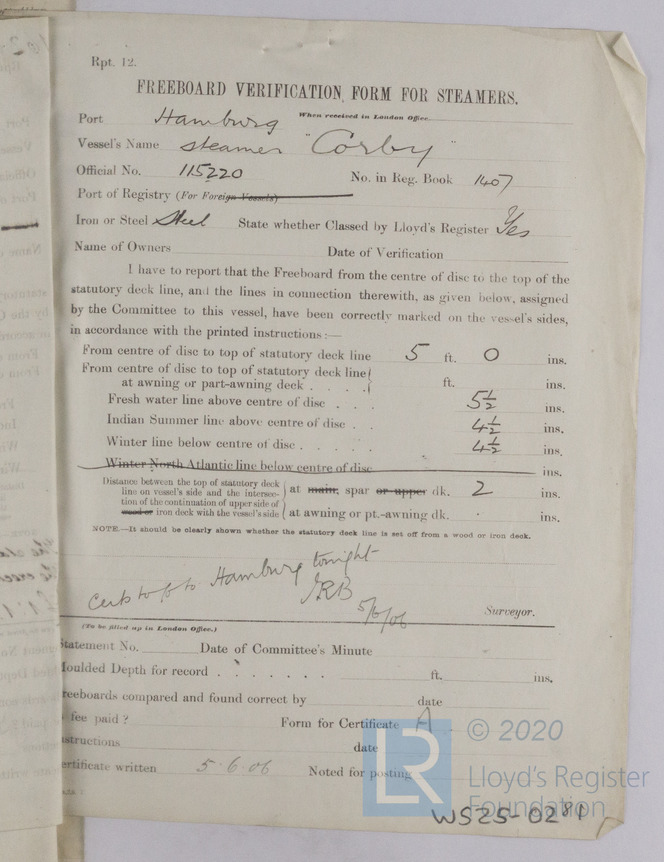 Rpt. 12.
FREEBOARD VERIFICATION FORM FOR STEAMERS.
Port Hamburg When received in London Office
Vessel's Name Steamer "Corby"
Official No. 115220 No. in Reg. Book 1407
Port of Registry (For Foreign Vessels)
Iron or Steel Steel State whether Classed by Lloyd's Register Yes
Name of Owners Date of Verification
I have to report that the Freeboard from the centre of disc to the top of the
statutory deck line, and the lines in connection therewith, as given below, assigned
by the Committee to this vessel, have been correctly marked on the vessel's sides,
in accordance with the printed instructions:—
From centre of disc to top of statutory deck line 5 ft. 0 ins.
From centre of disc to top of statutory deck line
at awning or part-awning deck . . . . ft. ins.
Fresh water line above centre of disc . . . 5½ ins.
Indian Summer line above centre of disc . . 4½ ins.
Winter line below centre of disc . . . . . 4½ ins.
Winter North Atlantic line below centre of disc ins.
Distance between the top of statutory deck
line on vessel's side and the intersec-
tion of the continuation of upper side of
wood or iron deck with the vessel's side
at main, spar or upper dk. 2 ins.
at awning or pt.-awning dk. . ins.
NOTE.—It should be clearly shown whether the statutory deck line is set off from a wood or iron deck.
to Hamburg tonight
5/6/06
Surveyor.
(To be filled up in London Office.)
Statement No. Date of Committee's Minute
Moulded Depth for record . . . . . . . ft. ins.
reeboards compared and found correct by date
fee paid ? Form for Certificate A
nstructions date
ertificate written 5.6.06 Noted for posting
LR © 2020
Lloyd's Register
Foundation
WS25-0281